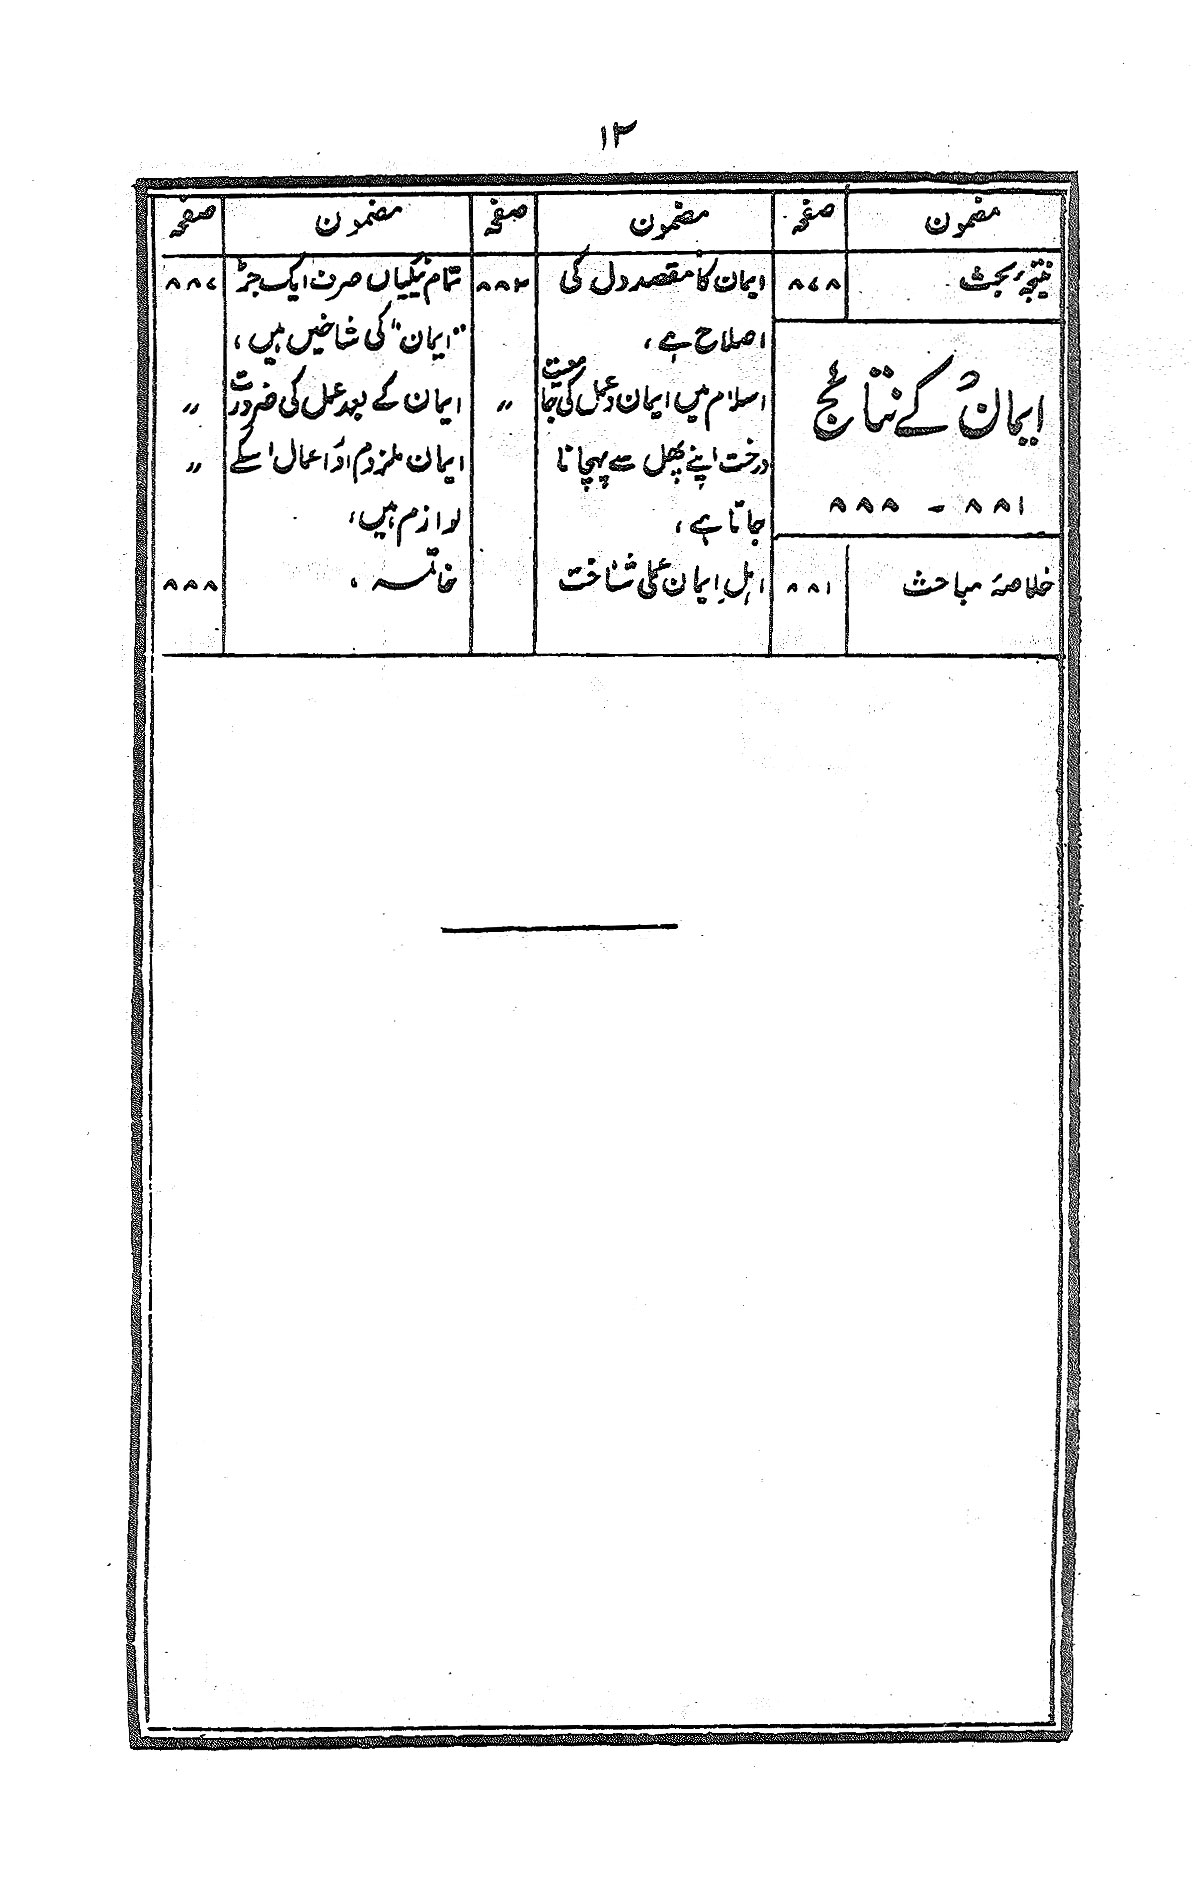 ۱۲
مضمون صفحہ مضمون صفحہ مضمون صفحہ
نتیجۂ بحث ۸۷۸
ایمان کے نتائج
۸۸۱ - ۸۸۸
خلاصۂ مباحث ۸۸۱
ایمان کا مقصد دل کی ۸۸۲
اصلاح ہے،
اسلام میں ایمان و عمل کی جامعیت "
درخت اپنے پھل سے پہچانا
جاتا ہے،
اہلِ ایمان کی عملی شناخت
تمام نیکیاں صرف ایک جڑ ۸۸۷
"ایمان" کی شاخیں ہیں،
ایمان کے بعد عمل کی ضرورت "
ایمان ملزوم اور اعمال اسکے "
لوازم ہیں،
خاتمہ ، ۸۸۸